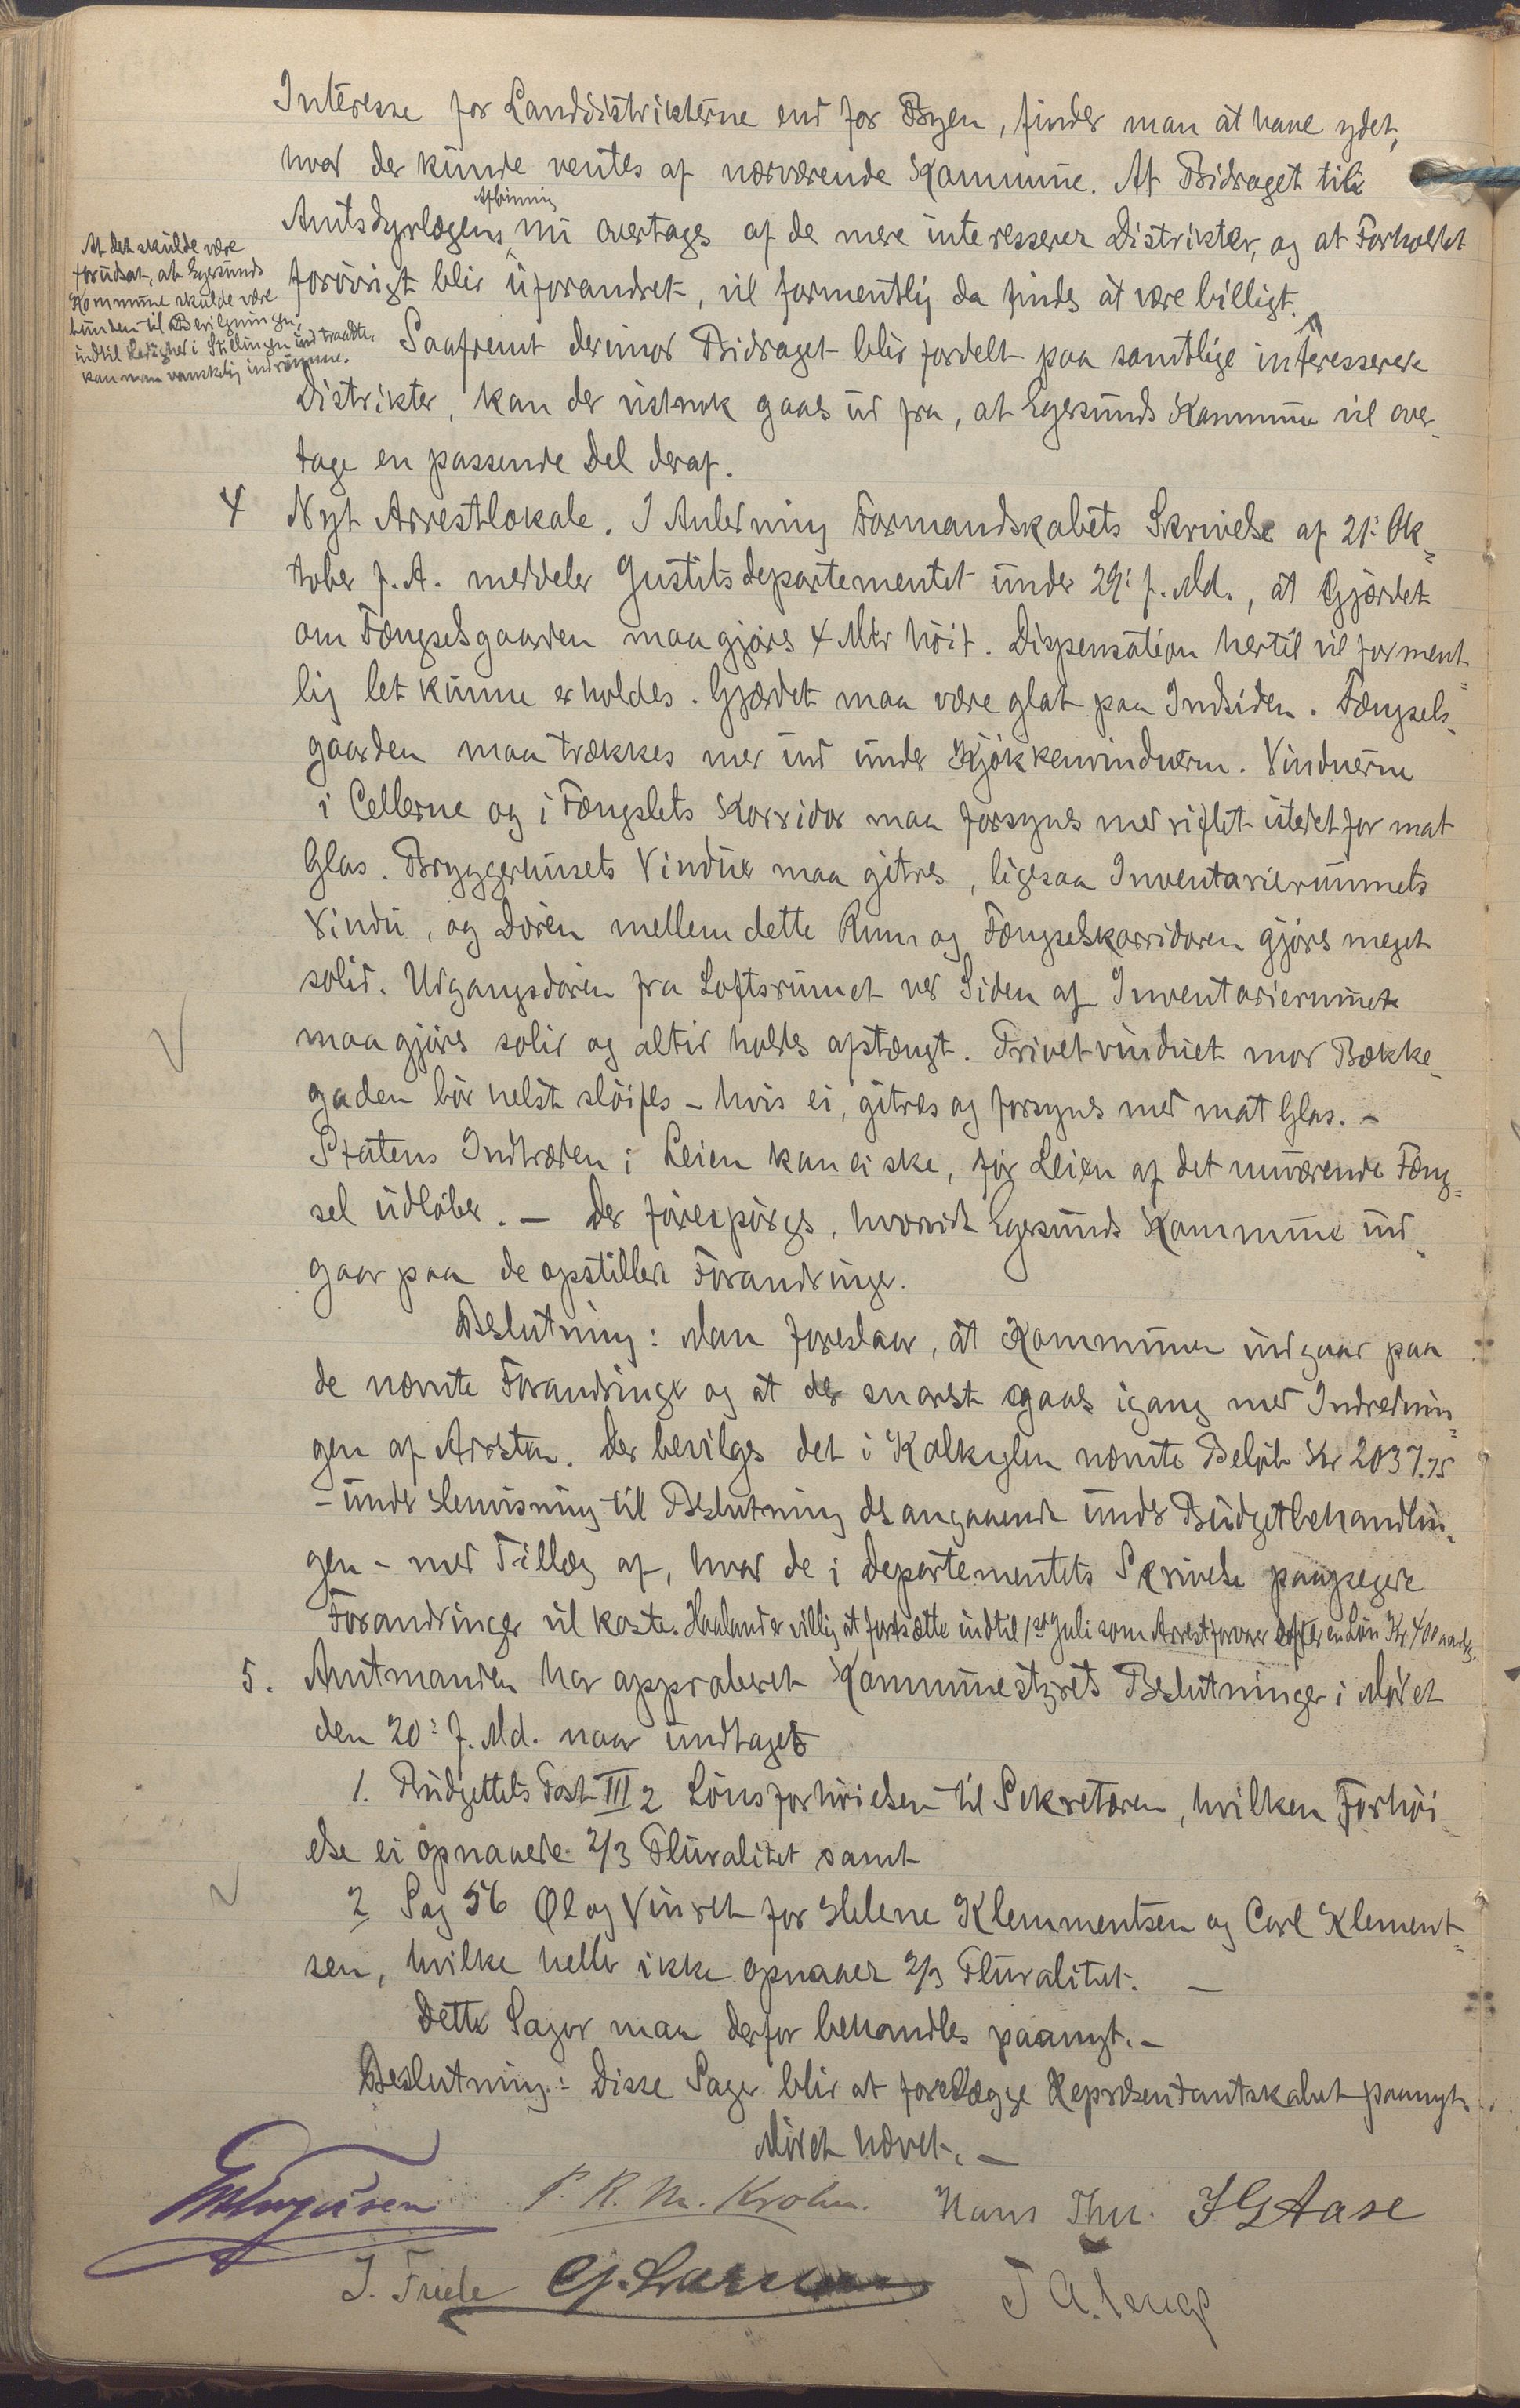 Interesse for Landdistrikterne end for Byen, finder man at have ydet,
hvad der kunde ventes af nærværende Kommune. At Bidraget til
Amtsdyrlægens Aflønning nu overtages af de mere interesserede Distrikter, og at Forholdet
forövrigt blir uforandret, vil formentlig da findes at være billigt.
At det skulde være
forudsat, at Egersunds
Kommune skulde være
bunden til Bevilgningen,
indtil Ledighed i Stillingen indtraadte,
kan man vanskelig indrømme.
Saafremt derimod Bidraget blir fordelt paa samtlige interesserede
Distrikter, kan der vistnok gaaes ud fra, at Egersunds Kommune vil over-
tage en passende Del deraf.
4 Nyt Arrestlokale. I Anledning Formandskabets Skrivelse af 21: Ok-
tober f. A. meddeler Justitsdepartementet under 29: f. Md., at Gjærdet
om Fængselsgaarden maa gjøres 4 Mtr höit. Dispensation hertil vil forment-
lig let kunne erholdes. Gjærdet maa være glat paa Indsiden. Fængsels-
gaarden maa trækkes mer ind under Kjökkenvinduerne. Vinduerne
i Cellerne og i Fængslets Korridor maa forsynes med riflet istedetfor mat
Glas. Bryggerhusets Vindue maa gitres, ligesaa Inventarierummets
Vindu, og Dören mellem dette Rum og Fængselskorridoren gjöres meget
solid. Udgangsdören fra Loftsrummet ved Siden af Inventarierummet
maa gjöres solid og altid holdes afstængt. Privetvinduet mod Bække-
gaden bör helst slöifes - hvis ei, gitres og forsynes med mat Glas. -
Statens Indtræden i Leien kan ei ske, för Leien af det nuværende Fæng-
sel udlöber. - Der forespörges, hvorvidt Egersunds Kommune ind-
gaar paa de opstillede Forandringer.
Beslutning: Man foreslaar, at Kommunen indgaar paa
de nævnte Forandringer og at der snarest gaaes igang med Indrednin-
gen af Arresten. Der bevilges det i Kalkylen nævnte Belöb Kr 2037.75
- under Henvisning til Beslutning desangaaende under Budgetbehandlin-
gen - med Tillæg af, hvad de i Departementets Skrivelse paapegede
Forandringer vil koste. Haaland er villig at fortsætte indtil 1ste Juli som Arrestforvarer efter en Lön Kr 400 aarlig.
5. Amtmanden har approberet Kommunestyrets Beslutninger i Mödet
den 20: f. Md. naar undtages
1. Budgettets Post III 2 Lönsforhöielsen til Sekretæren, hvilken Forhöi-
else ei opnaaede 2/3 Pluralitet samt
2 Sag 56 Øl og Vinret for Helene Klemmentsen og Carl Klement-
sen, hvilke heller ikke opnaaede 2/3 Pluralitet. -
Dette Sager maa derfor behandles paanyt. -
Beslutning: Disse Sager blir at forelægge Repræsentantskabet paanyt.
Mödet hævet. -
P. R. M. Krohn. Hans Thu. J G Aase